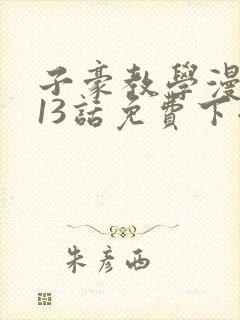 子豪教學漫
13話免費下
朱彥西